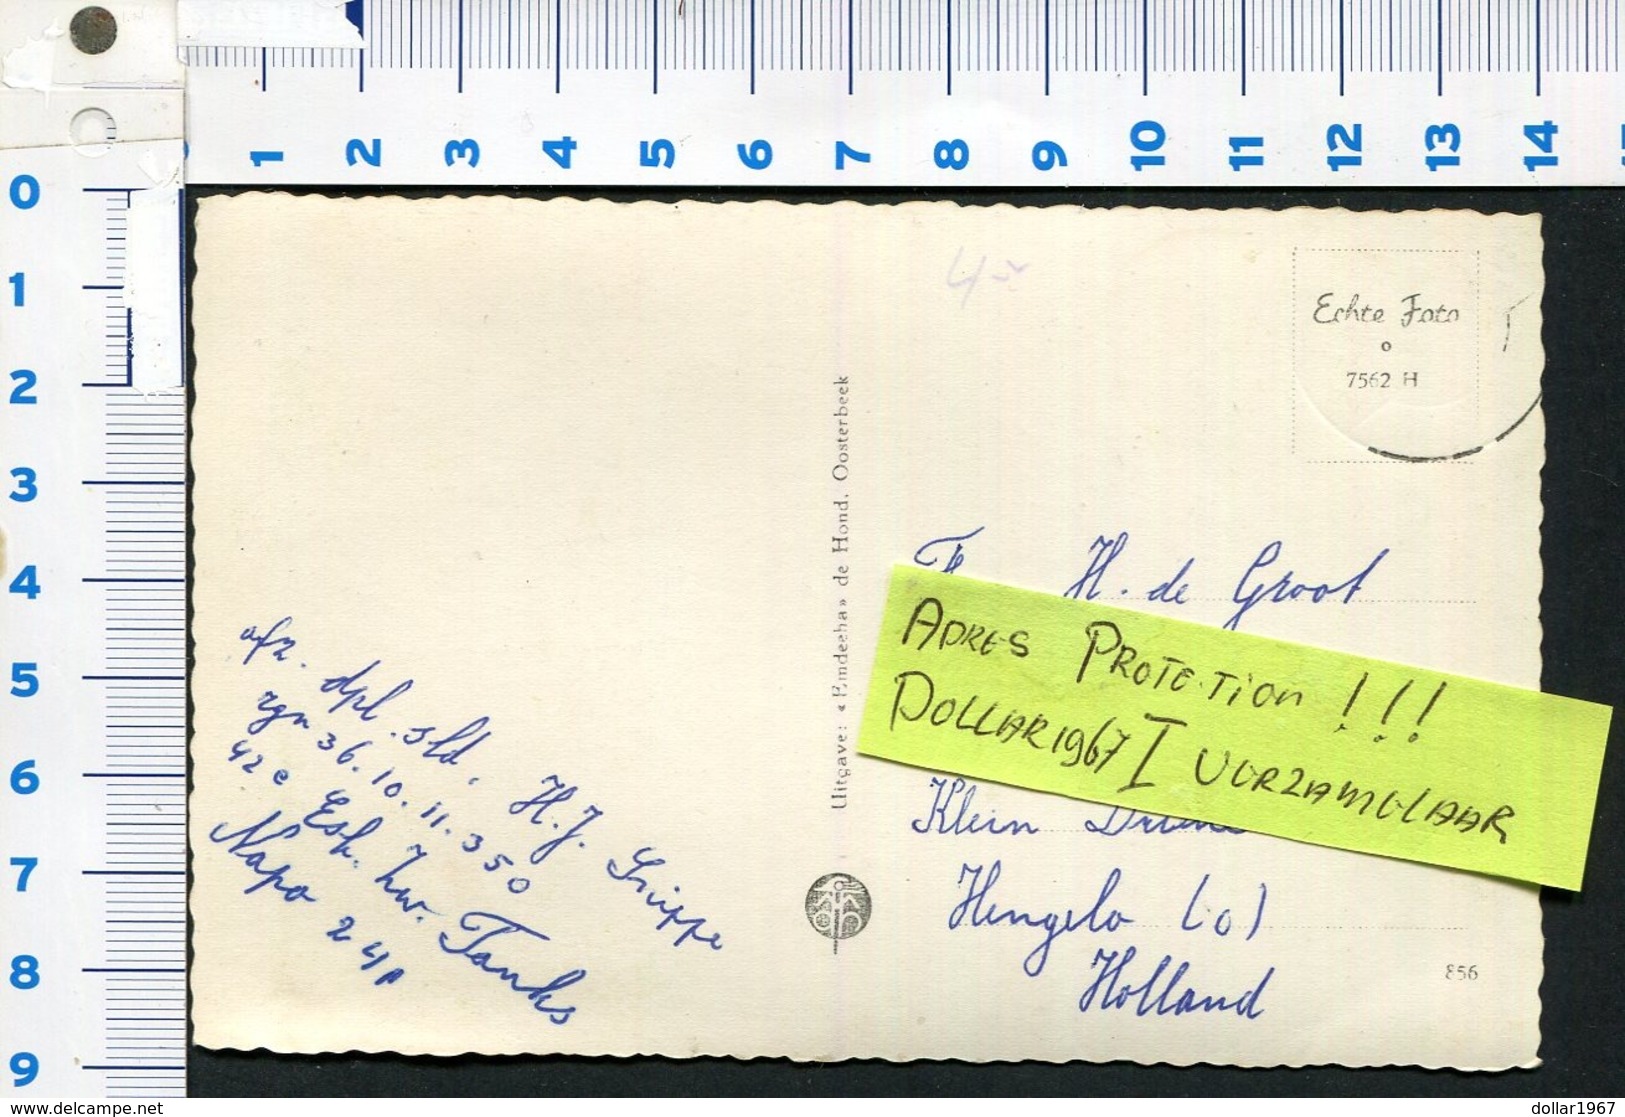 1 2 3 4 5 6 7 8 9 10 11 12 13 14
0
1
2
3
4
5
6
7
8
9
45
Echte Foto
o
7562 H
afz. dpl. sld. H.J. Snippe
rgn 36.10.11.350
42e Esk. Zw. Tanks
Napo 241
Uitgave: «Emdeeha» de Hond, Oosterbeek
H. de Groot
ADRES PROTE-TION !!!
DOLLAR1967 I VORZAMELAAR
Klein
Hengelo (o)
Holland
856
www.delcampe.net
dollar1967